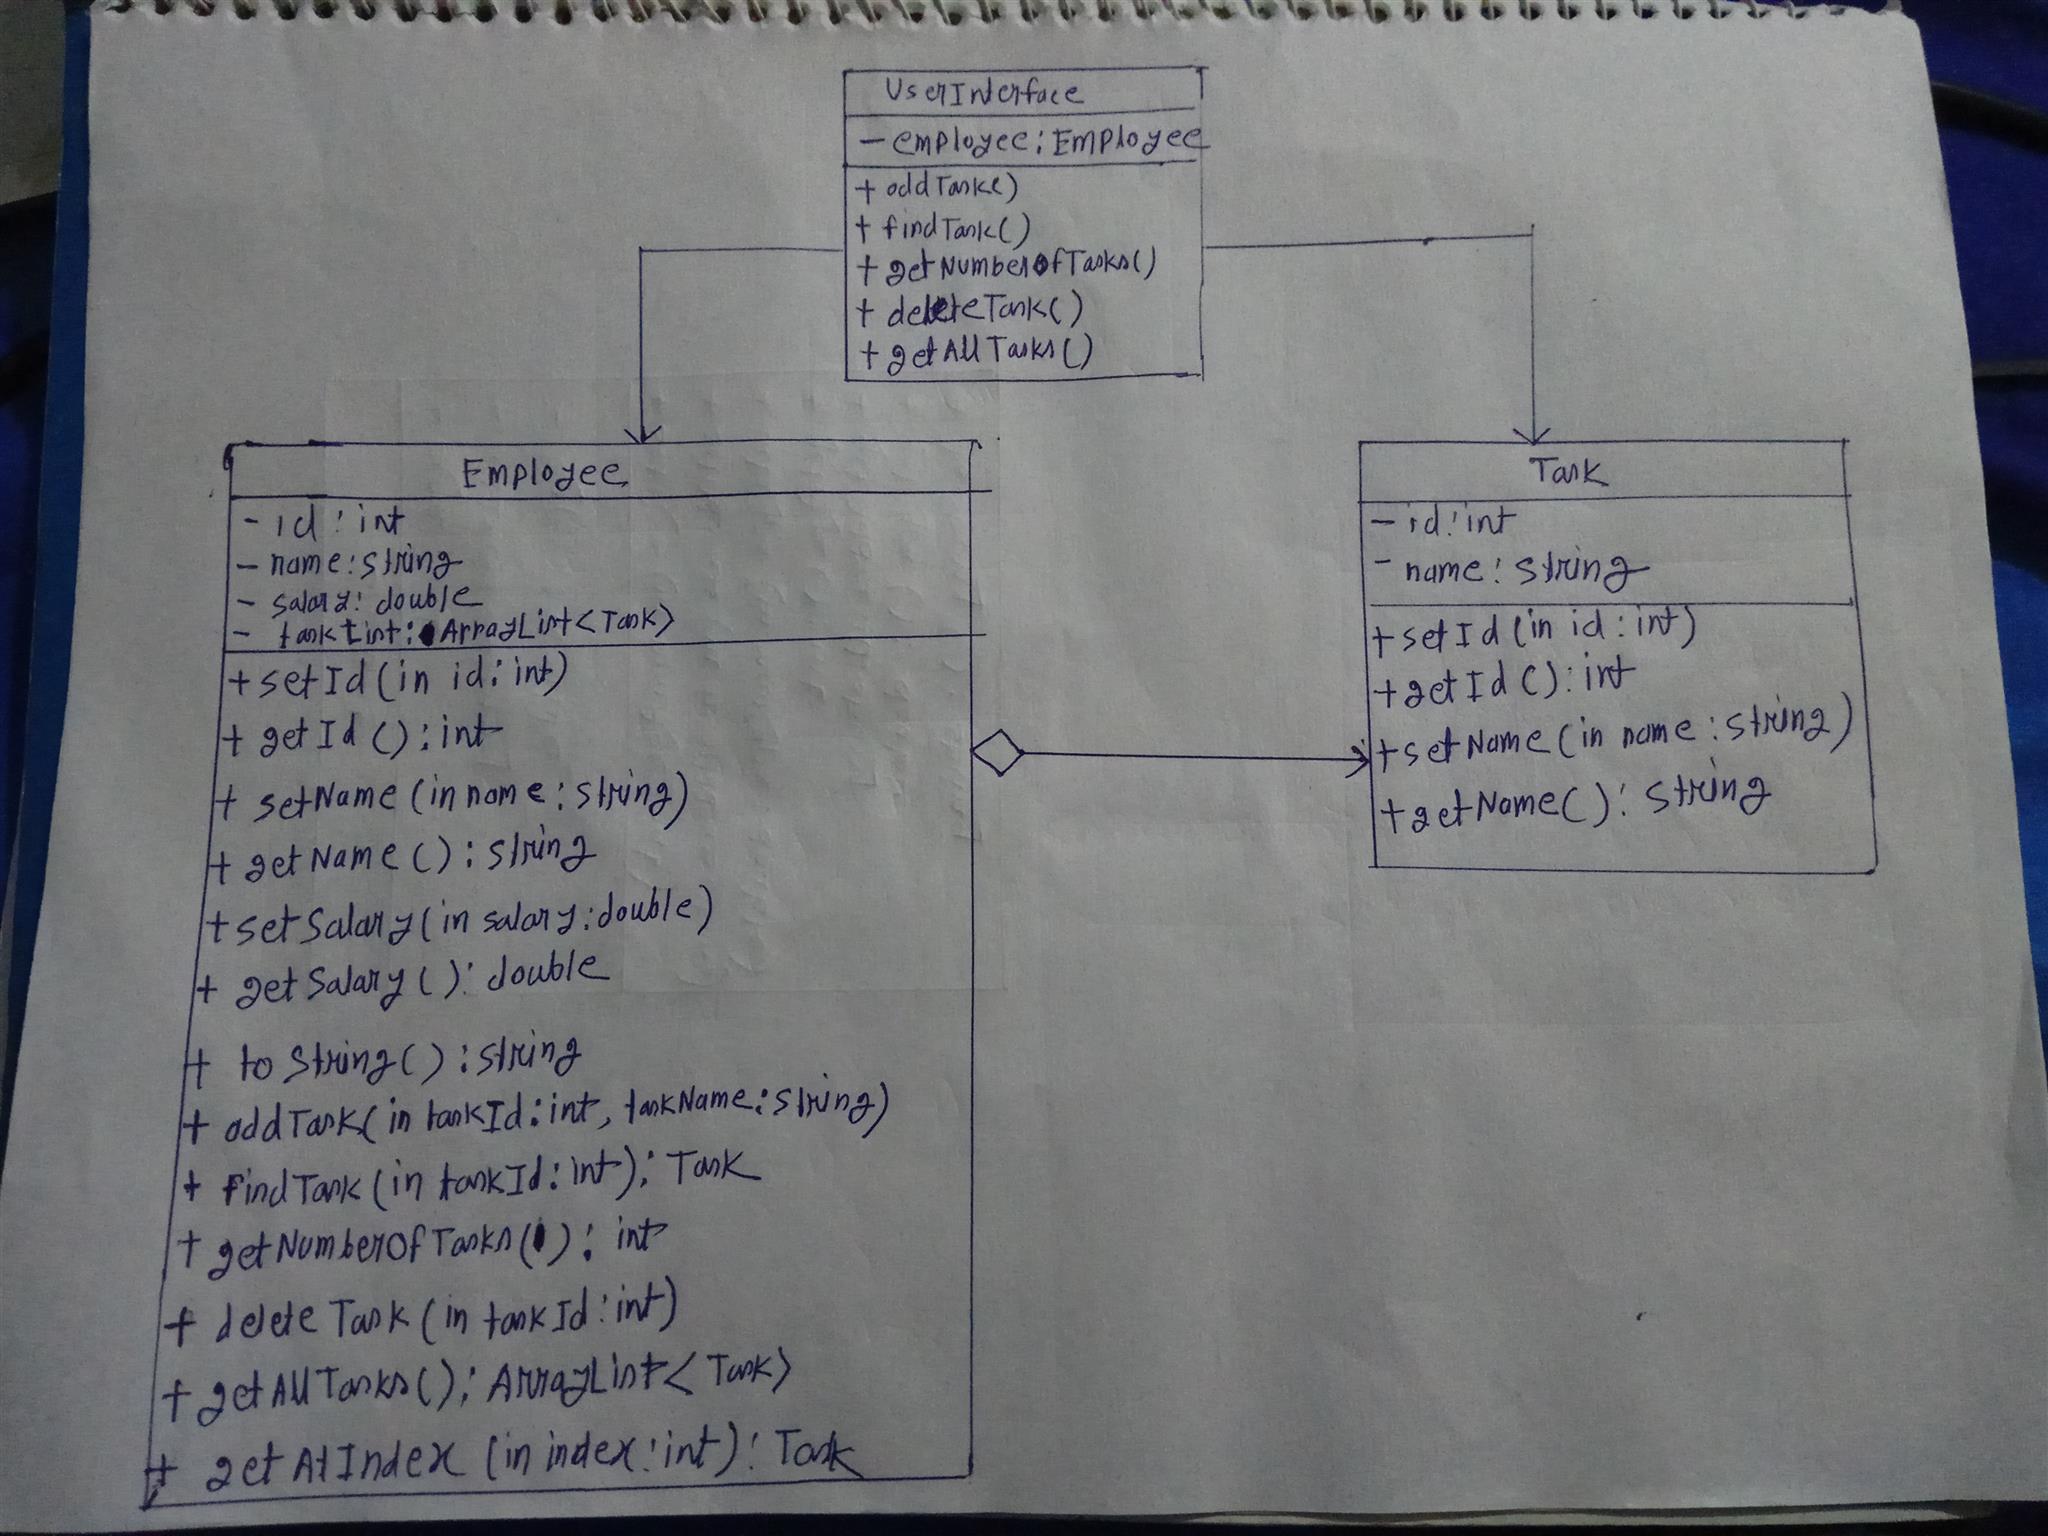 UserInterface
- employee: Employee
+ addTask()
+ findTask()
+ getNumberOfTasks()
+ deleteTask()
+ getAllTasks()
Employee
- id: int
- name: string
- salary: double
- taskList: ArrayList<Task>
+ setId (in id: int)
+ getId (): int
+ setName (in name: string)
+ getName (): string
+ setSalary (in salary: double)
+ getSalary (): double
+ toString(): string
+ addTask(in taskId: int, taskName: string)
+ findTask (in taskId: int): Task
+ getNumberOfTasks(): int
+ deleteTask (in taskId: int)
+ getAllTasks(): ArrayList<Task>
+ getAtIndex (in index: int): Task
Task
- id: int
- name: string
+ setId (in id: int)
+ getId (): int
+ setName (in name: string)
+ getName(): string